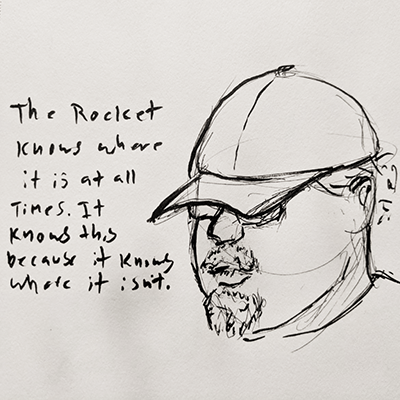 The Rocket
Knows where
it is at all
Times. It
Knows this
because it Knows
where it isn't.